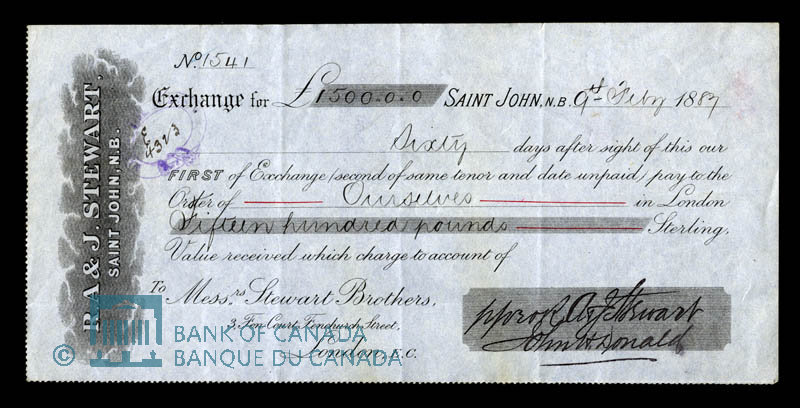 No. 1541
Exchange for £1500.0.0 SAINT JOHN, N.B. 9th Feby 1887
Sixty days after sight of this our
FIRST of Exchange (second of same tenor and date unpaid) pay to the
Order of Ourselves in London
Fifteen hundred pounds Sterling,
Value received which charge to account of
To Messrs. Stewart Brothers,
3, Fen Court, Fenchurch Street,
London, E.C.
R. A. & J. STEWART,
SAINT JOHN, N.B.
E
4323
R A & J Stewart
John H Donald
© BANK OF CANADA
BANQUE DU CANADA